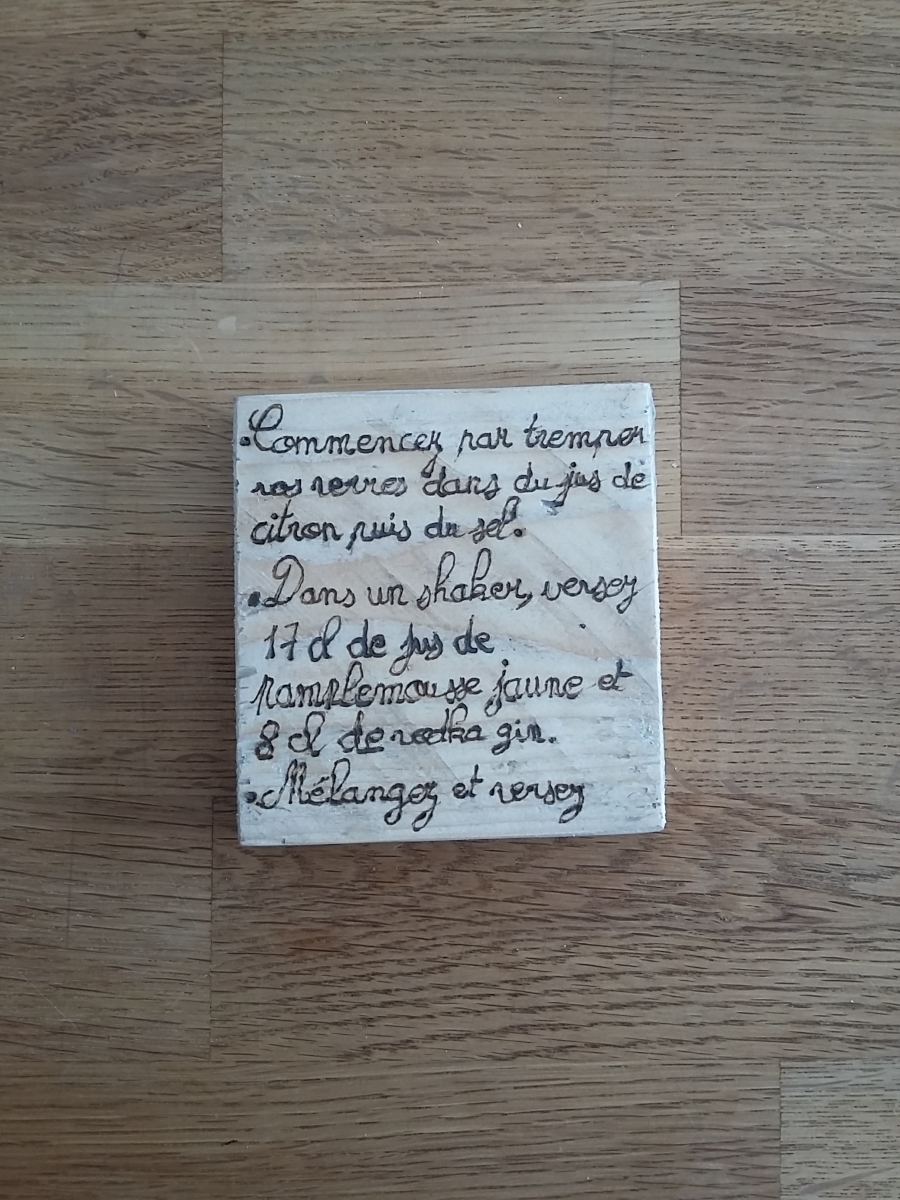 • Commencez par tremper
vos verres dans du jus de
citron puis du sel.
• Dans un shaker, versez
17 cl de jus de
pamplemousse jaune et
8 cl de vodka gin.
• Mélangez et versez